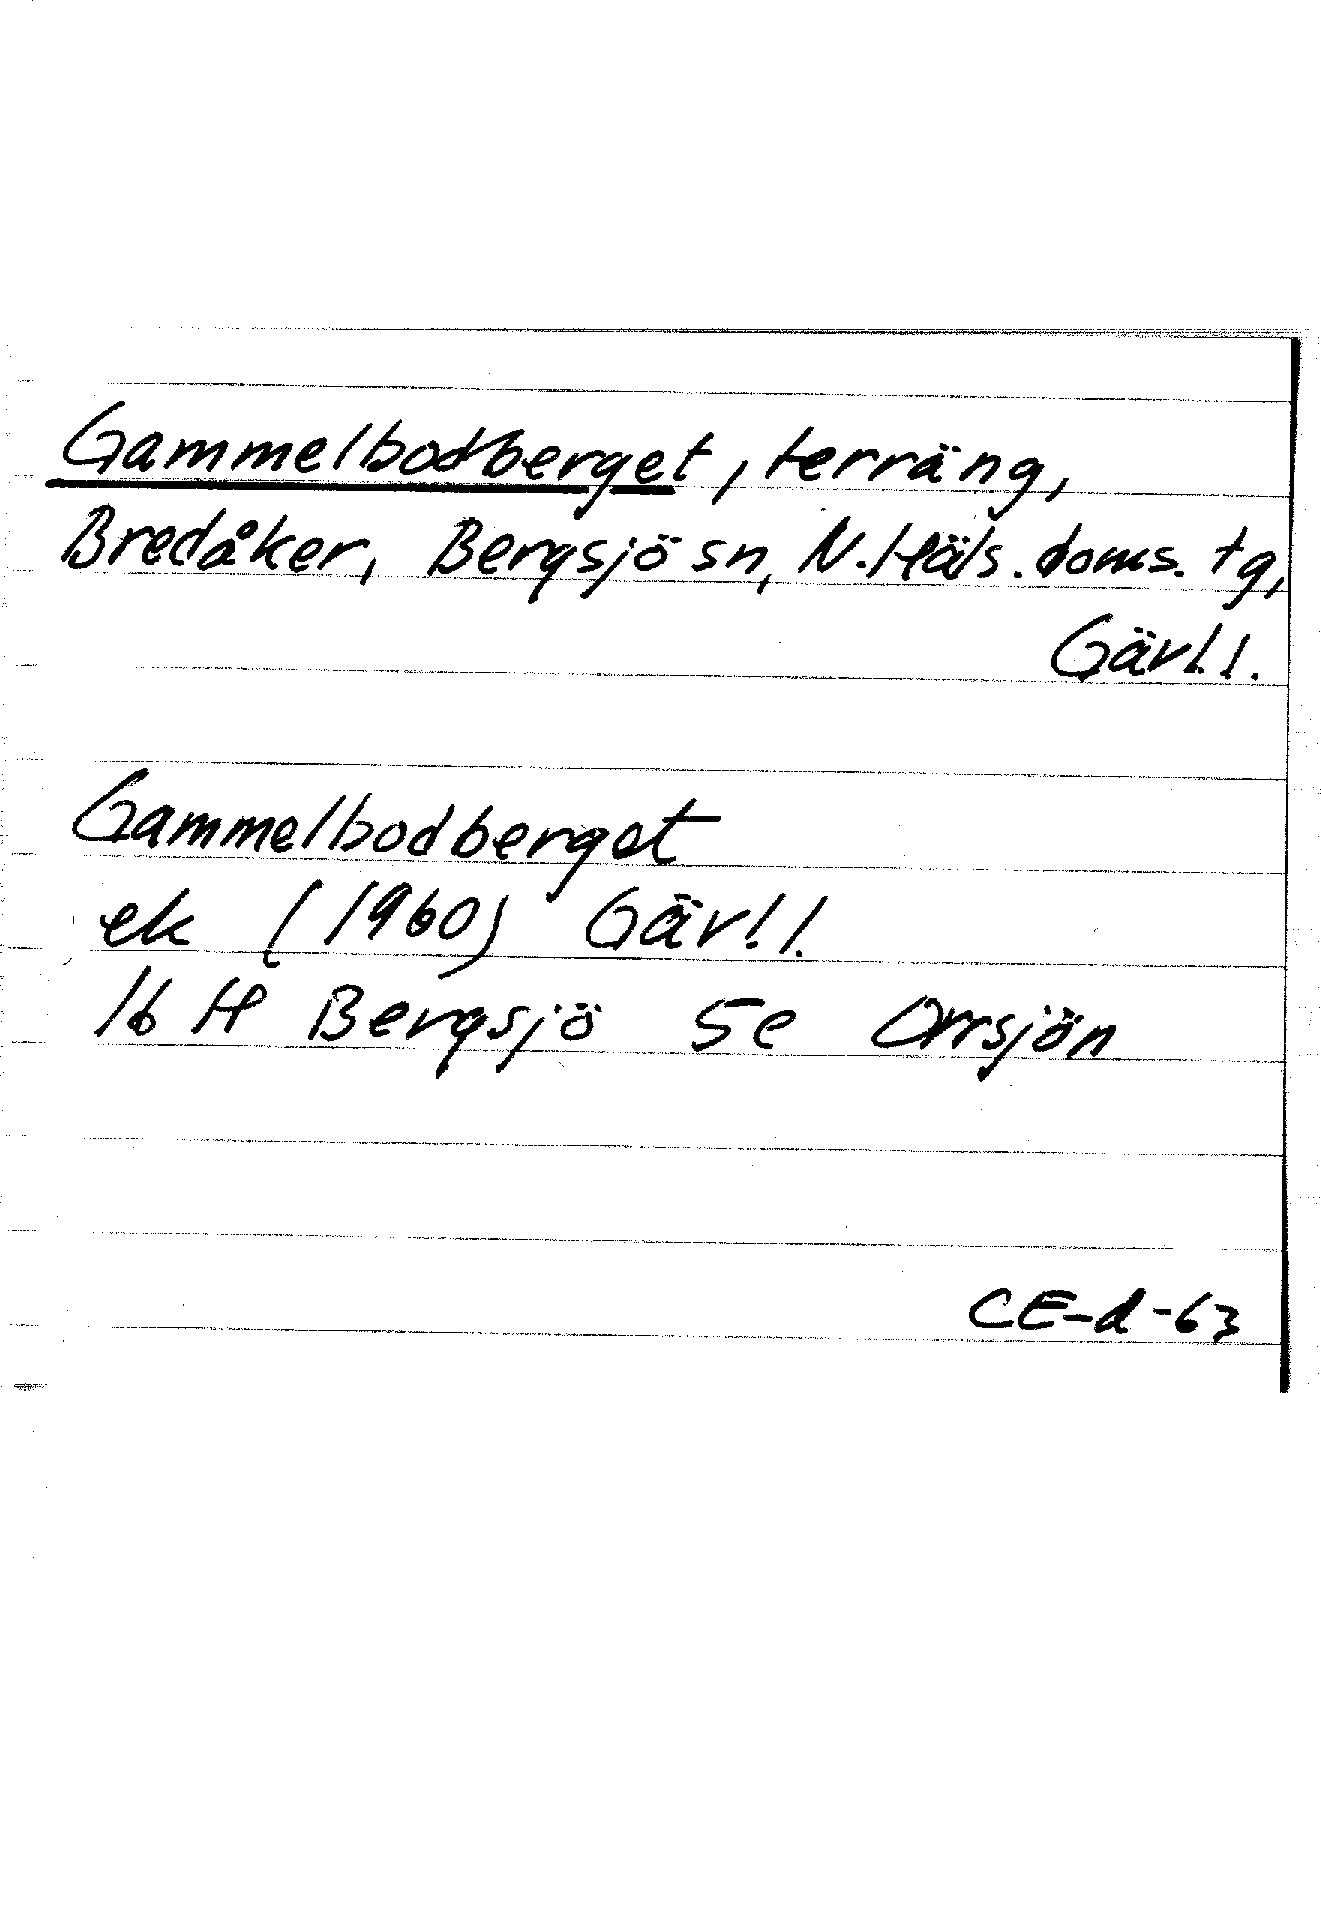 Gammelbodberget, terräng,
Bredåker, Bergsjö sn, N. Häls. doms. tg,
Gävl. l.
Gammelbodberget
ek (1960) Gävl. l.
16 H Bergsjö 5e Orrsjön
CE-d-63